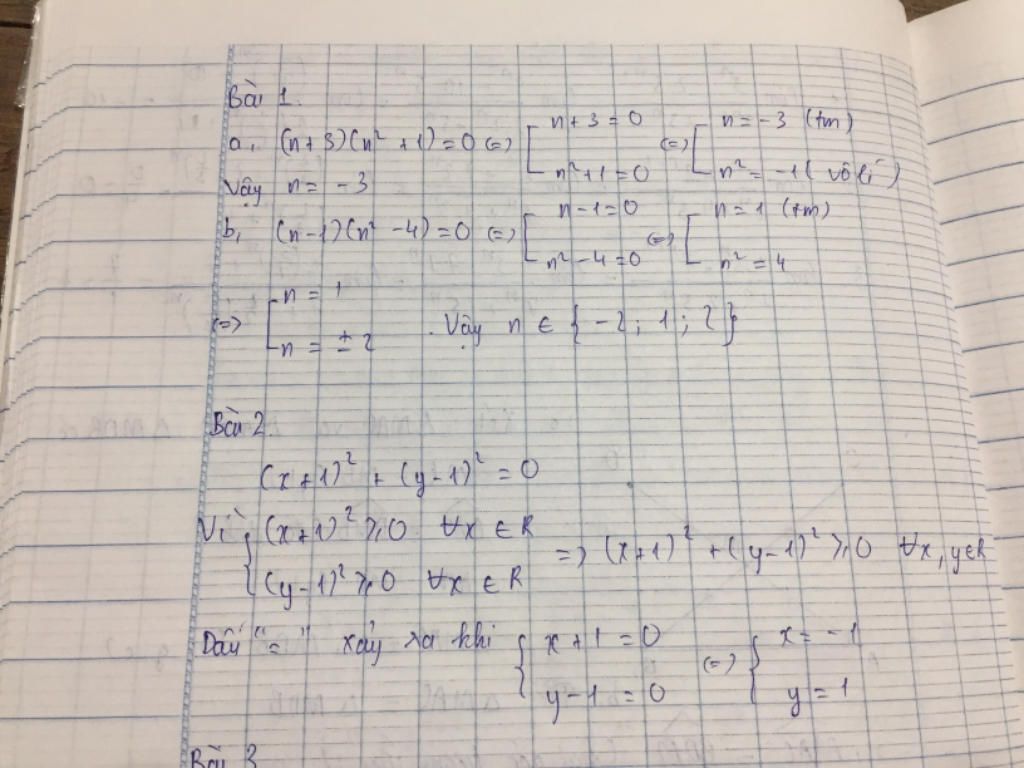 Bài 1.
a, (n+3)(n² + 1) = 0 (=) [ n + 3 = 0 (=) [ n = -3 (tm)
n² + 1 = 0 n² = -1 ( vô lí )
Vậy n = -3
b, (n-1)(n² - 4) = 0 (=) [ n - 1 = 0 (=) [ n = 1 (tm)
n² - 4 = 0 n² = 4
(=) [ n = 1
n = ± 2 . Vậy n ∈ { -2 ; 1 ; 2 }
Bài 2
(x+1)² + (y-1)² = 0
Vì { (x+1)² ≥ 0 ∀x ∈ R
(y-1)² ≥ 0 ∀x ∈ R => (x+1)² + (y-1)² ≥ 0 ∀x, y ∈ R
Dấu "=" xảy ra khi { x + 1 = 0 (=) { x = -1
y - 1 = 0 y = 1
Bài 3